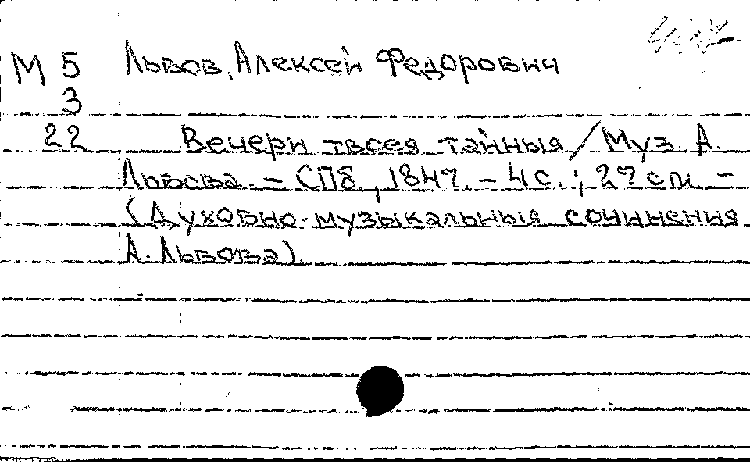 М 5 Львов, Алексей Федорович
3
22 Вечери твоея тайныя / Муз А.
Львова. – СПб, 1847. – 4 с.; 27 см –
(Духовно-музыкальныя сочинения
А. Львова)